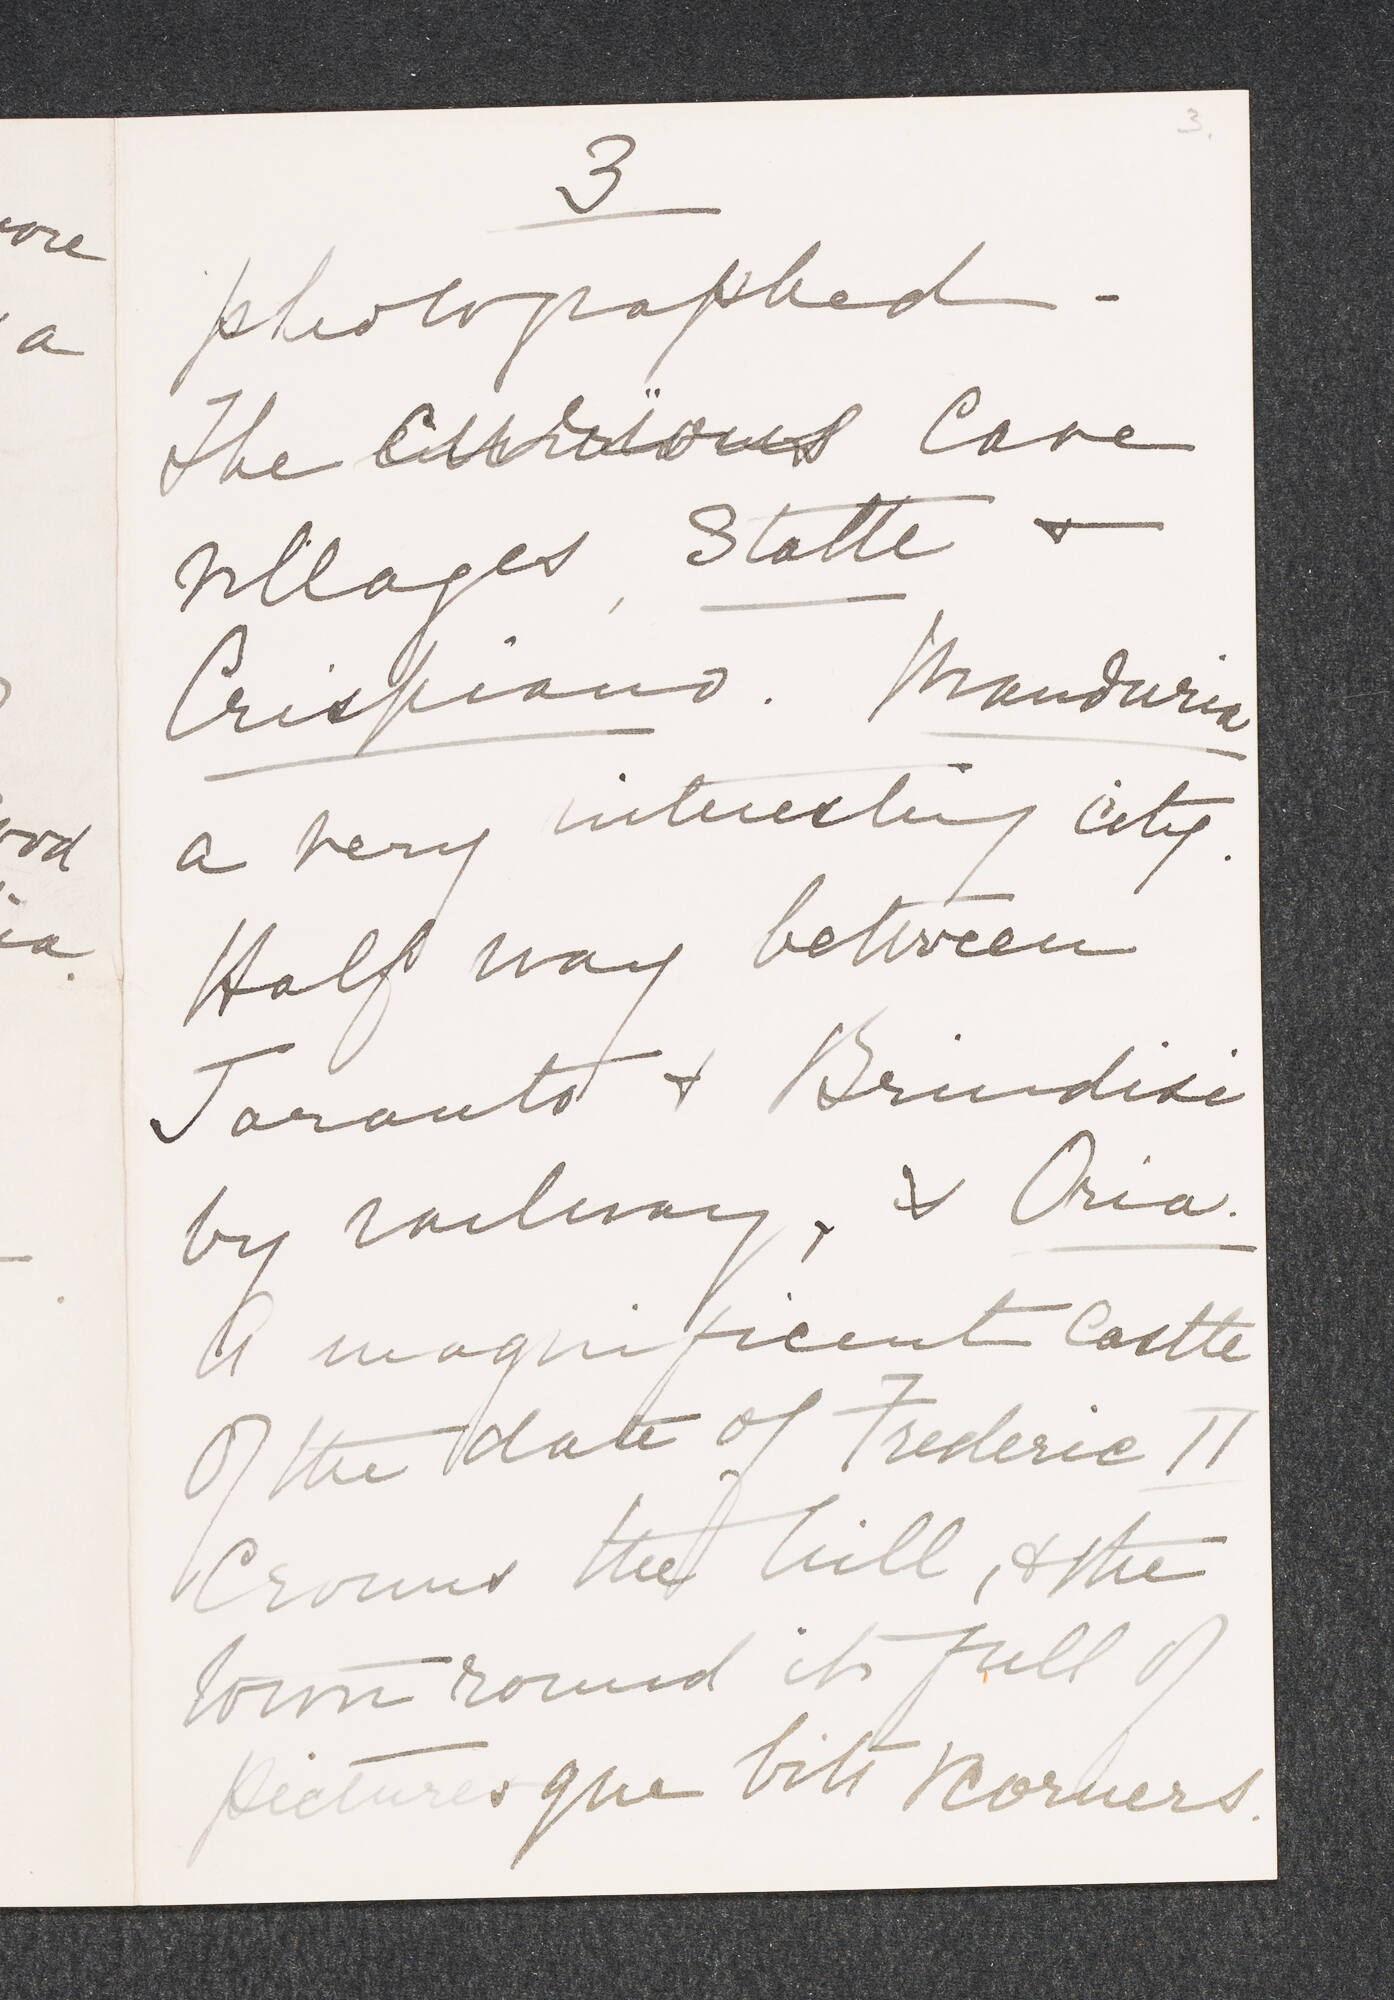 3.
3
photographed -
The curious Cave
villages, Statte &
Crispiano. Manduria
a very interesting city.
Half way between
Taranto & Brindisi
by railway, & Oria.
A magnificent Castle
of the date of Frederic II
Crowns the hill, & the
town round it full of
picturesque bits & corners.
more
a
ood
ia.